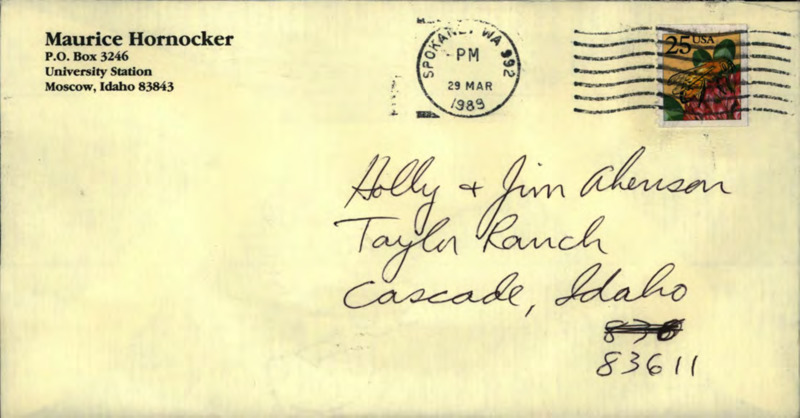 Maurice Hornocker
P.O. Box 3246
University Station
Moscow, Idaho 83843
SPOKANE, WA 992
PM
29 MAR
1989
25 USA
Holly + Jim Akenson
Taylor Ranch
Cascade, Idaho
83611